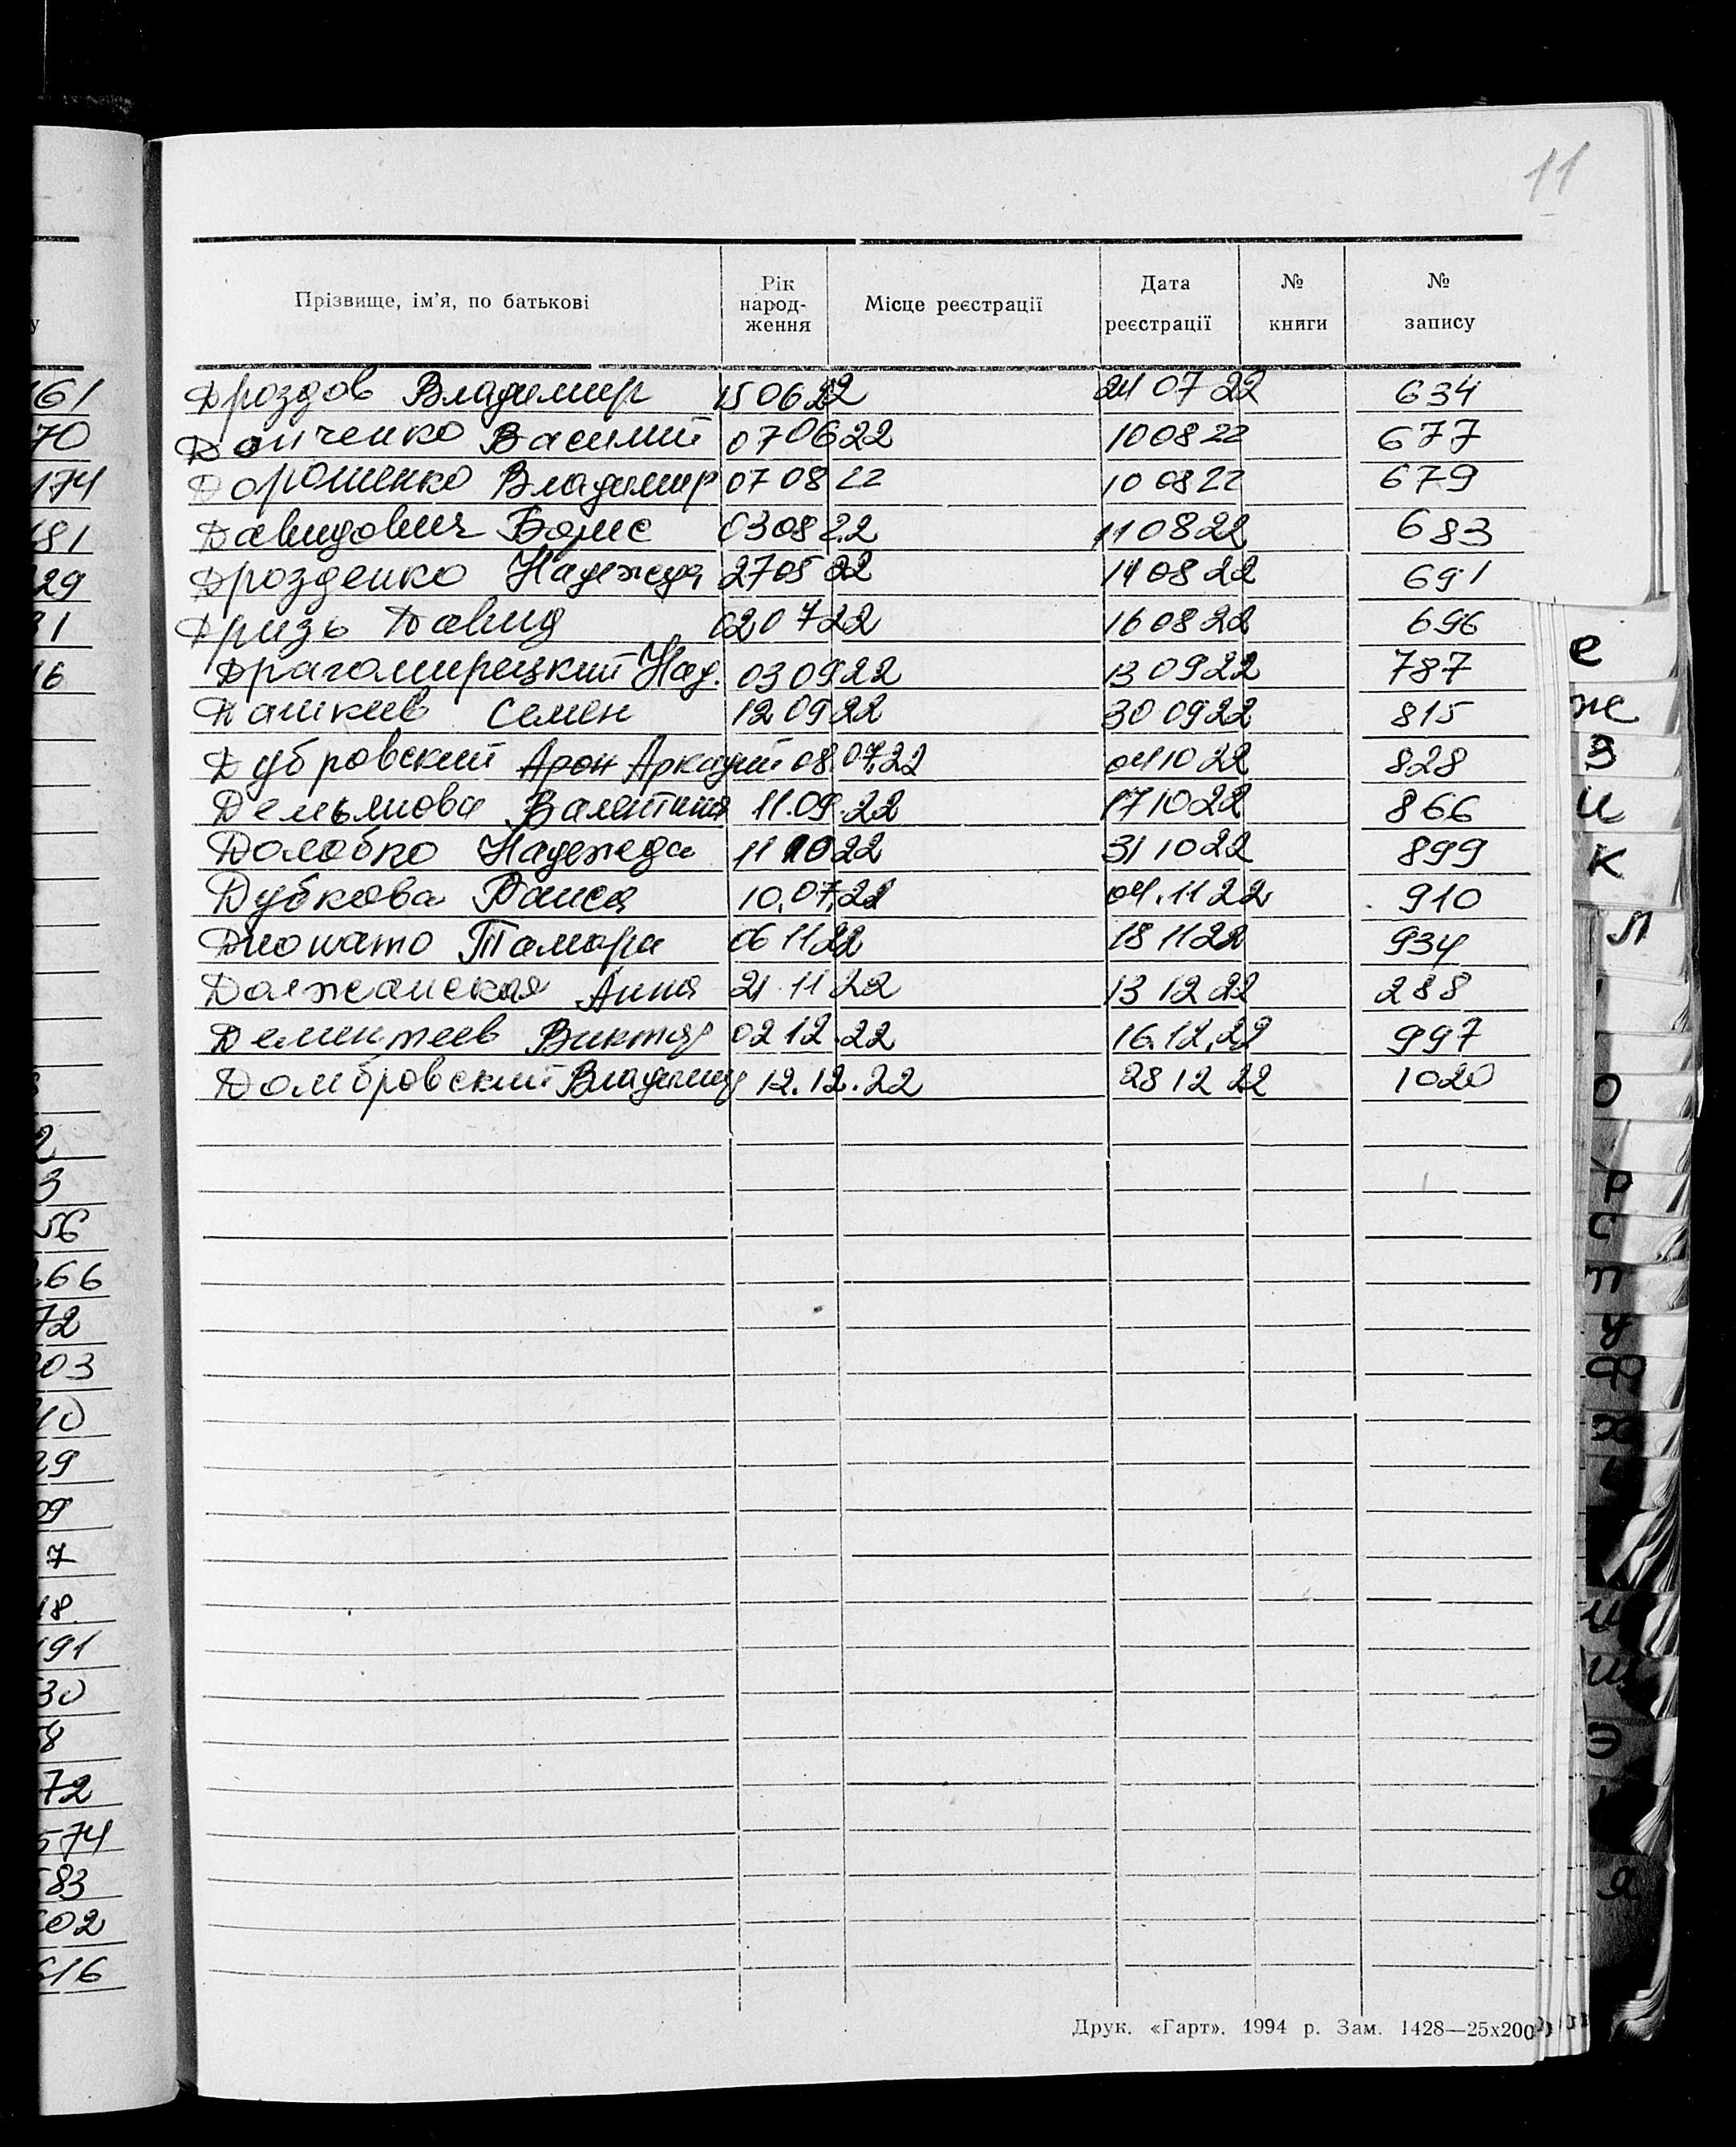 11
Прізвище, ім'я, по батькові Рік народ- ження Місце реєстрації Дата реєстрації № книги № запису
Дроздов Владимир 15 06 22 24 07 22 634
Василий 07 06 22 10 08 22 677
Дорошенко Владимир 07 08 22 10 08 22 679
Давидович Борис 03 08 22 11 08 22 683
Дрозденко Надежда 27 05 22 14 08 22 691
Дризь Давид 07 22 16 08 22 696
Драгомирецкий Над. 03 09 22 13 09 22 787
Дашкев Семен 12 09 22 30 09 22 815
Дубровский Арон Аркадий 08.07.22 04 10 22 828
Демьянова Валентина 11.09.22 17 10 22 866
Долобко Надежда 11 10 22 31 10 22 899
Дубкова Раиса 10.07.22 04.11 22 910
Тамара 06 11 22 18 11 22 934
Должанская Анна 21 11 22 13 12 22 288
Дементеев Виктор 02 12.22 16.12.22 997
Домбровский Владимир 12.12.22 28 12 22 1020
Друк. «Гарт». 1994 р. Зам. 1428—25х200
161
70
174
181
29
31
16
2
3
56
266
72
203
10
29
09
7
18
191
30
8
72
574
583
602
616
е
ж
З
И
К
Л
О
Р
С
Т
У
Ф
Х
Ц
Ш
Э
Я